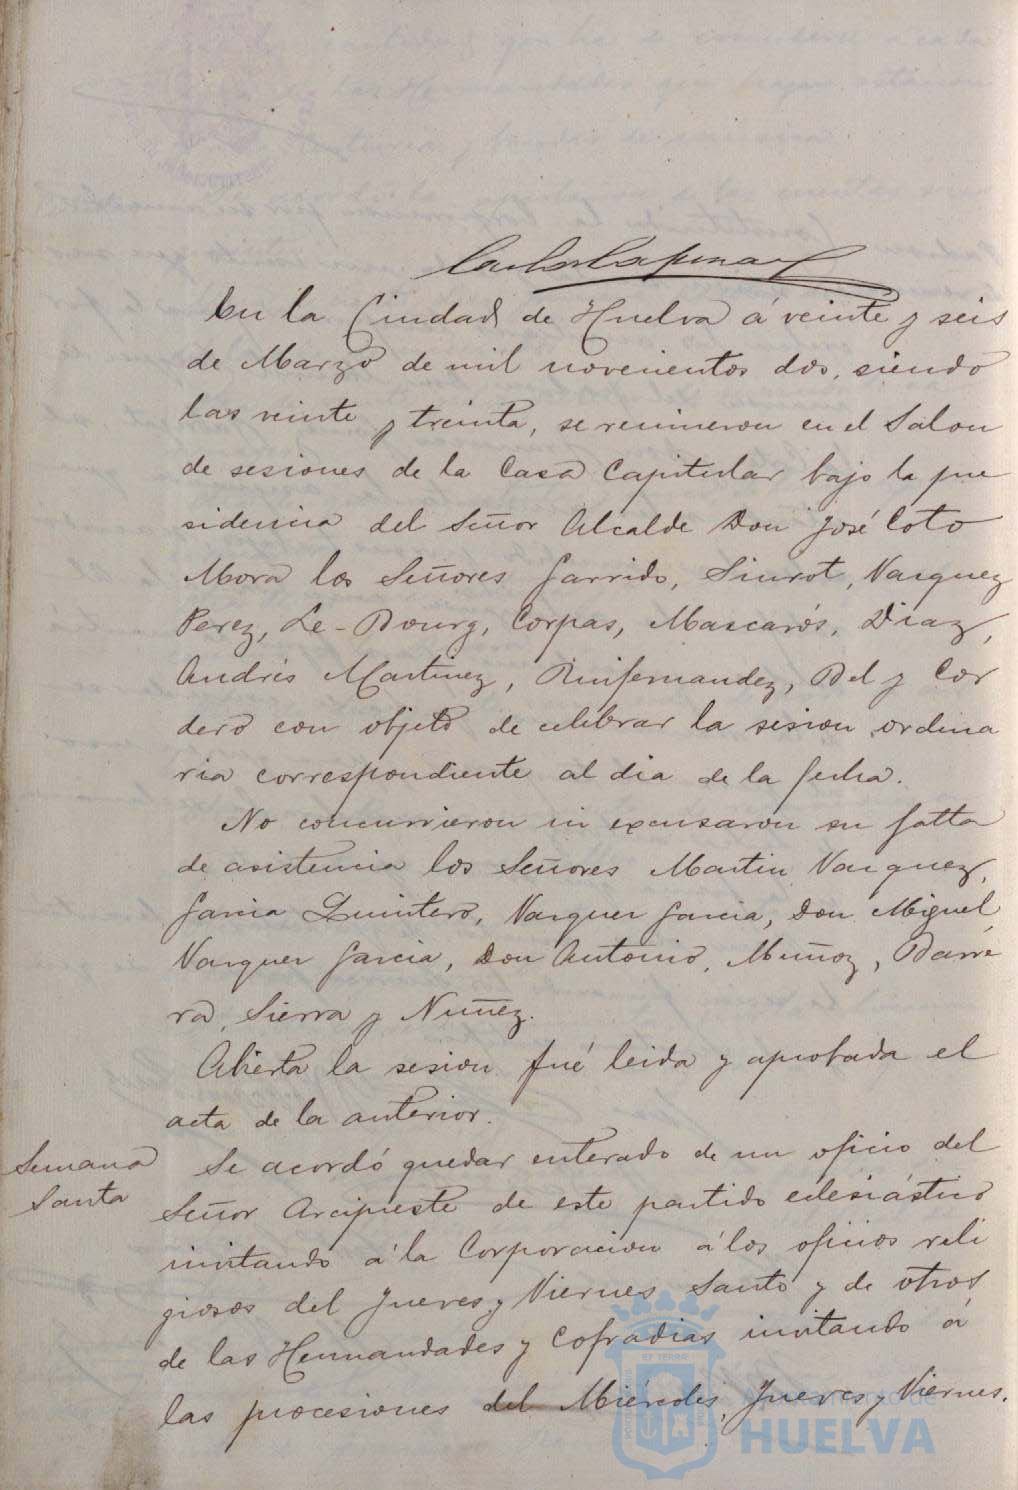 En la Ciudad de Huelva á veinte y seis
de Marzo de mil novecientos dos, siendo
las veinte y treinta, se reunieron en el Salon
de sesiones de la Casa Capitular bajo la pre
sidencia del Señor Alcalde Don José Coto
Mora los Señores Garrido, Siurot, Vazquez
Perez, Le-Bourg, Corpas, Mascarós, Diaz,
Andrés Martinez, Ruifernandez, Bel y Cor
dero con objeto de celebrar la sesion ordina
ria correspondiente al dia de la fecha.
No concurrieron ni excusaron su falta
de asistencia los Señores Martin Vazquez,
Garcia Quintero, Vazquez Garcia, Don Miguel
Vazquez Garcia, Don Antonio, Muñoz, Barre
ra, Sierra y Nuñez.
Abierta la sesion fué leida y aprobada el
acta de la anterior.
Semana
Santa
Se acordó quedar enterado de un oficio del
Señor Arcipreste de este partido eclesiástico
invitando á la Corporacion á los oficios reli
giosos del Jueves y Viernes Santo y de otros
de las Hermandades y Cofradias invitando á
las procesiones del Miércoles, Jueves y Viernes.
Ayuntamiento de
HUELVA